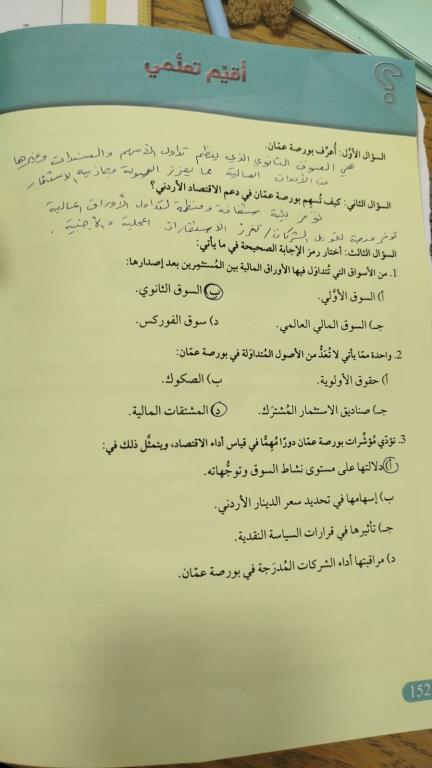 أقيّم تعلّمي
السؤال الأوّل: أُعرِّف بورصة عمّان.
هي السوق الثانوي الذي ينظم تداول الأسهم والسندات وغيرها
من الأدوات المالية مما يعزز السيولة وجاذبية الاستثمار
السؤال الثاني: كيف تُسهم بورصة عمّان في دعم الاقتصاد الأردني؟
توفر بيئة شفافة ومنظمة لتداول الأوراق المالية
توفر فرصة لتمويل الشركات / تعزز الاستثمارات المحلية والأجنبية.
السؤال الثالث: أختار رمز الإجابة الصحيحة في ما يأتي:
1. من الأسواق التي تُتداوَل فيها الأوراق المالية بين المُستثمِرين بعد إصدارها:
أ) السوق الأوَّلي. ب) السوق الثانوي.
جـ) السوق المالي العالمي. د) سوق الفوركس.
2. واحدة ممّا يأتي لا تُعَدُّ من الأصول المُتداوَلة في بورصة عمّان:
أ) حقوق الأولوية. ب) الصكوك.
جـ) صناديق الاستثمار المُشترَك. د) المشتقات المالية.
3. تؤدّي مُؤشِّرات بورصة عمّان دورًا مُهِمًّا في قياس أداء الاقتصاد، ويتمثَّل ذلك في:
أ) دلالتها على مستوى نشاط السوق وتوجُّهاته.
ب) إسهامها في تحديد سعر الدينار الأردني.
جـ) تأثيرها في قرارات السياسة النقدية.
د) مراقبتها أداء الشركات المُدرَجة في بورصة عمّان.
152